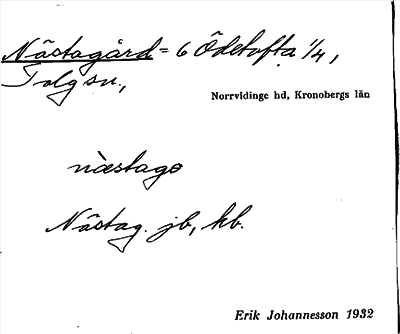 Nästagård = 6 Ödetofta 1/4,
Tolg sn.,
Norrvidinge hd, Kronobergs län
næstagɷ
Nästag. jb, kb.
Erik Johannesson 1932